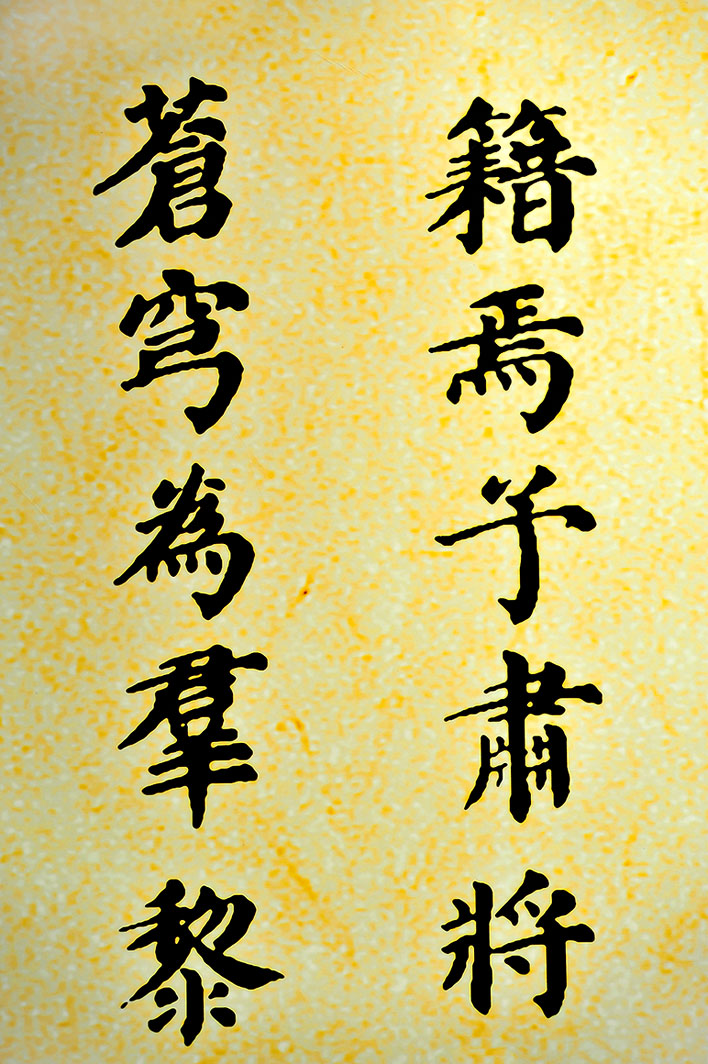 籍焉予肅將
蒼穹為羣黎